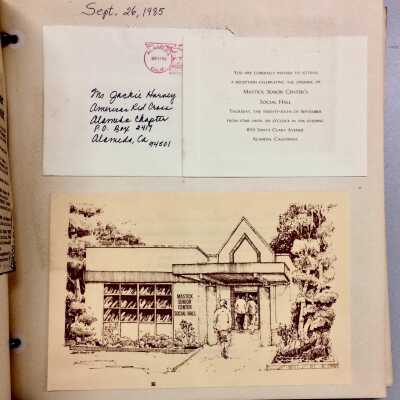 Sept. 26, 1985
Ms. Jackie Harvey
American Red Cross
Alameda Chapter
P.O. Box 2417
Alameda, Ca
94501
You are cordially invited to attend
a reception celebrating the opening of
Mastick Senior Center's
Social Hall
Thursday, the twenty-sixth of September
from four until six o'clock in the evening
Santa Clara Avenue
Alameda, California
MASTICK
SENIOR
CENTER
SOCIAL HALL